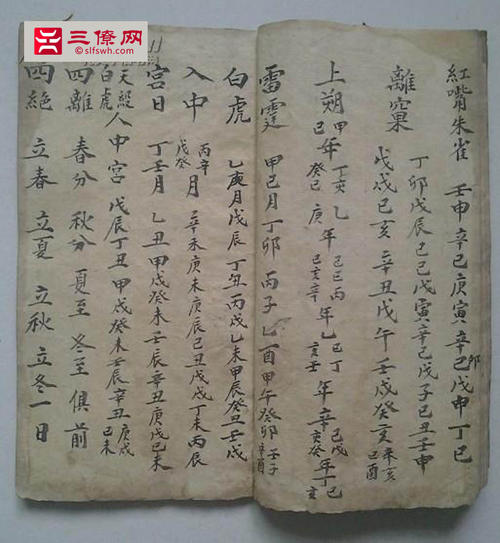 三僚网
www.slfswh.com
紅嘴朱雀 壬申 辛巳 庚寅 辛卯 戊申 丁巳
離窠 丁卯 戊辰 己巳 戊寅 辛巳 戊子 己丑 壬申
戊戌 己亥 辛丑 戊午 壬戌 癸亥 辛亥 己酉
上朔 甲年 癸
雷霆 甲己月 丁卯 丙子 乙酉 甲午 癸卯 壬子 辛酉
白虎 乙庚月 戊辰 丁丑 丙戌 乙未 甲辰 癸丑 壬戌
入中 丙辛 戊癸 月 辛未 庚 己丑 戊戌 丁未 丙辰
宮日 丁壬月 乙丑 甲戌 癸未 壬辰 辛丑 庚戌 己未
天殺 白虎 入中宮 戊辰 丁丑 甲戌 癸未 壬辰 辛丑 庚戌 己未
四離 春分 秋分 夏至 冬至 俱前
四絕 立春 立夏 立秋 立冬 一日